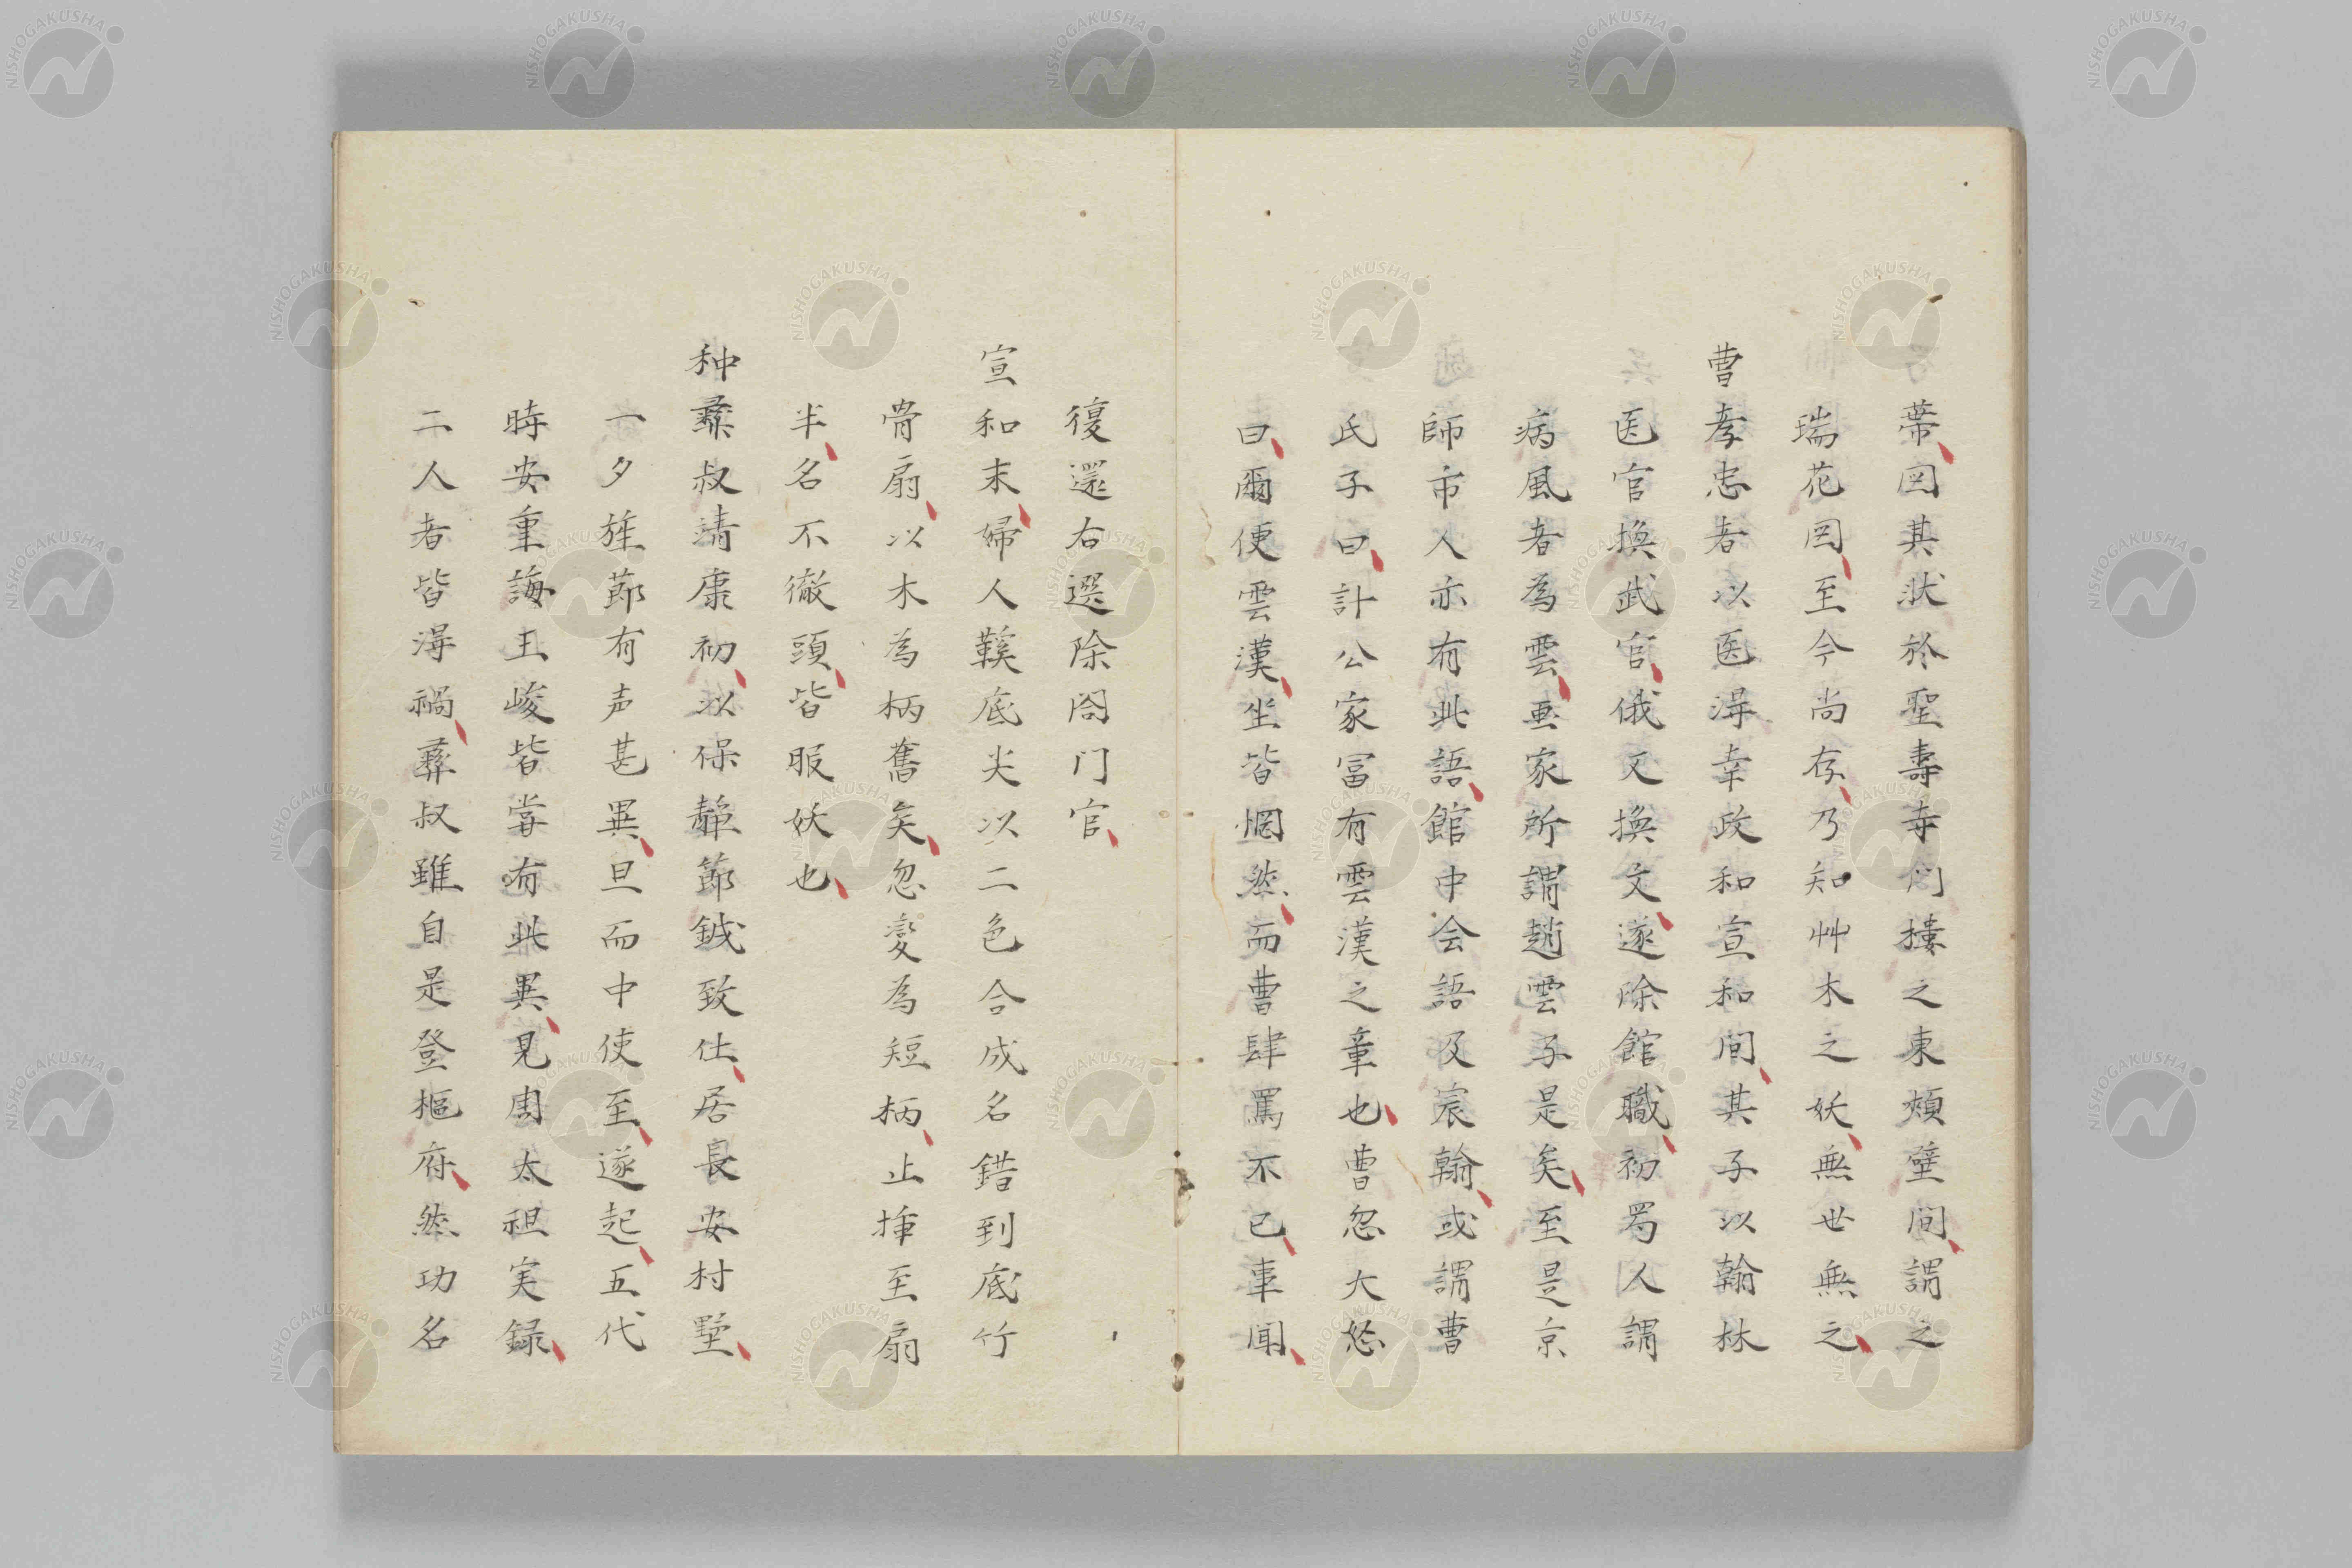 葉囯其狀於聖壽寺門樓之東頰壁间謂之
瑞花囯至今尚存乃知艸木之妖無世無之
曹孝忠者以医淂幸政和宣和间其子以翰林
医官換武官俄又換文遂除館職初蜀人謂
病風者為雲畫家所謂趙雲子是矣至是京
師市人亦有此語館中会語及宸翰或謂曹
氏子曰計公家冨有雲漢之章也曹忽大怒
曰爾便雲漢坐皆惘然而曹肆罵不已事聞
復還右選除閤门官
宣和末婦人鞵底尖以二色合成名錯到底竹
骨扇以木為柄舊矣忽變為短柄止揷至扇
半名不徹頭皆服妖也
种彛叔靖康初以保靜節鉞致仕居長安村墅
一夕旌節有声甚異旦而中使至遂起五代
時安重誨王峻皆甞有此異見周太祖実録
二人者皆淂禍彛叔雖自是登樞府然功名
NISHOGAKUSHA